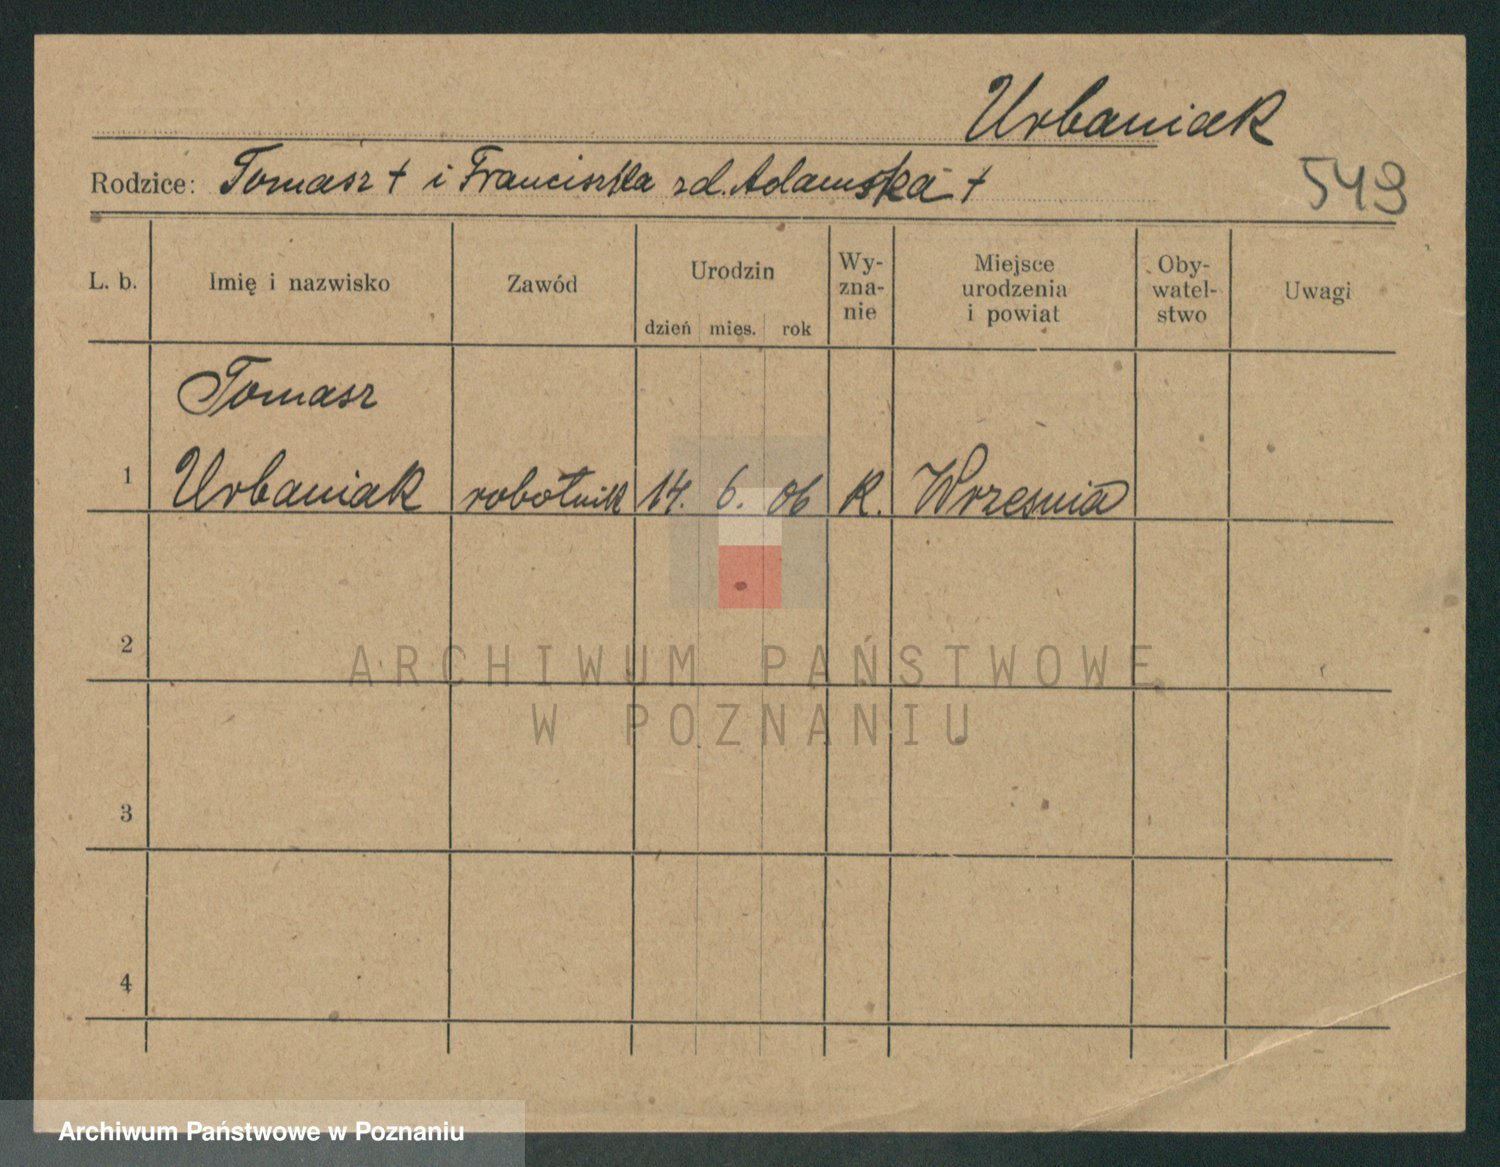 Urbaniak
Rodzice: Tomasz + i Franciszka zd. Adamska +
549
L. b. Imię i nazwisko Zawód Urodzin Wy-zna-nie Miejsce urodzenia i powiat Oby-watel-stwo Uwagi
dzień mies. rok
Tomasz
1 Urbaniak robotnik 14. 6. 06 k. Września
2
ARCHIWUM PAŃSTWOWE
W POZNANIU
3
4
Archiwum Państwowe w Poznaniu